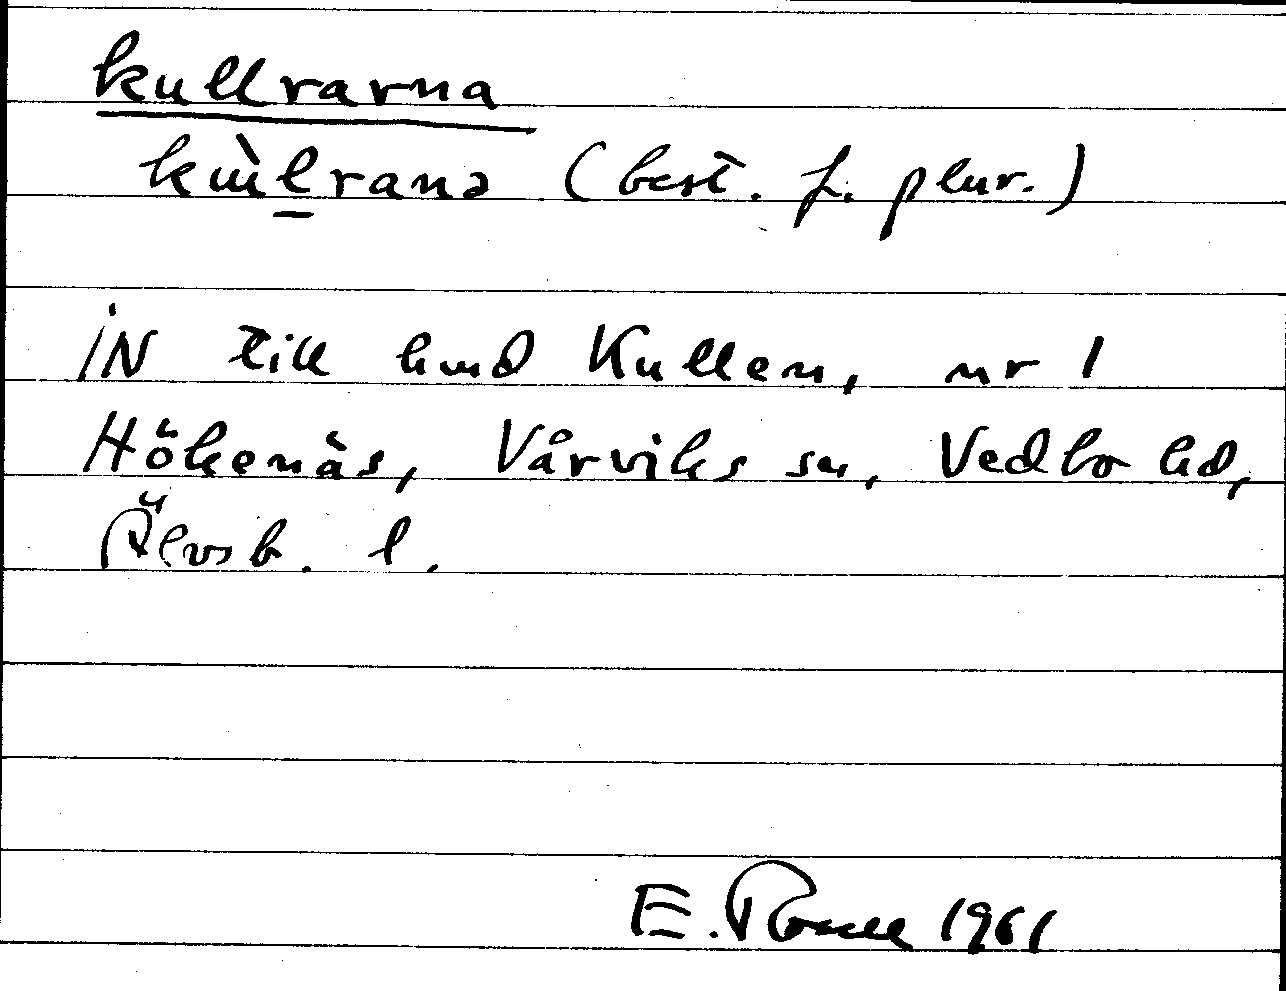 kullrarna
kùlrana (best. f. plur.)
IN till hmd Kullen, nr 1
Hökenäs, Vårviks sn, Vedbo hd,
Älvsb. l.
E. 1961